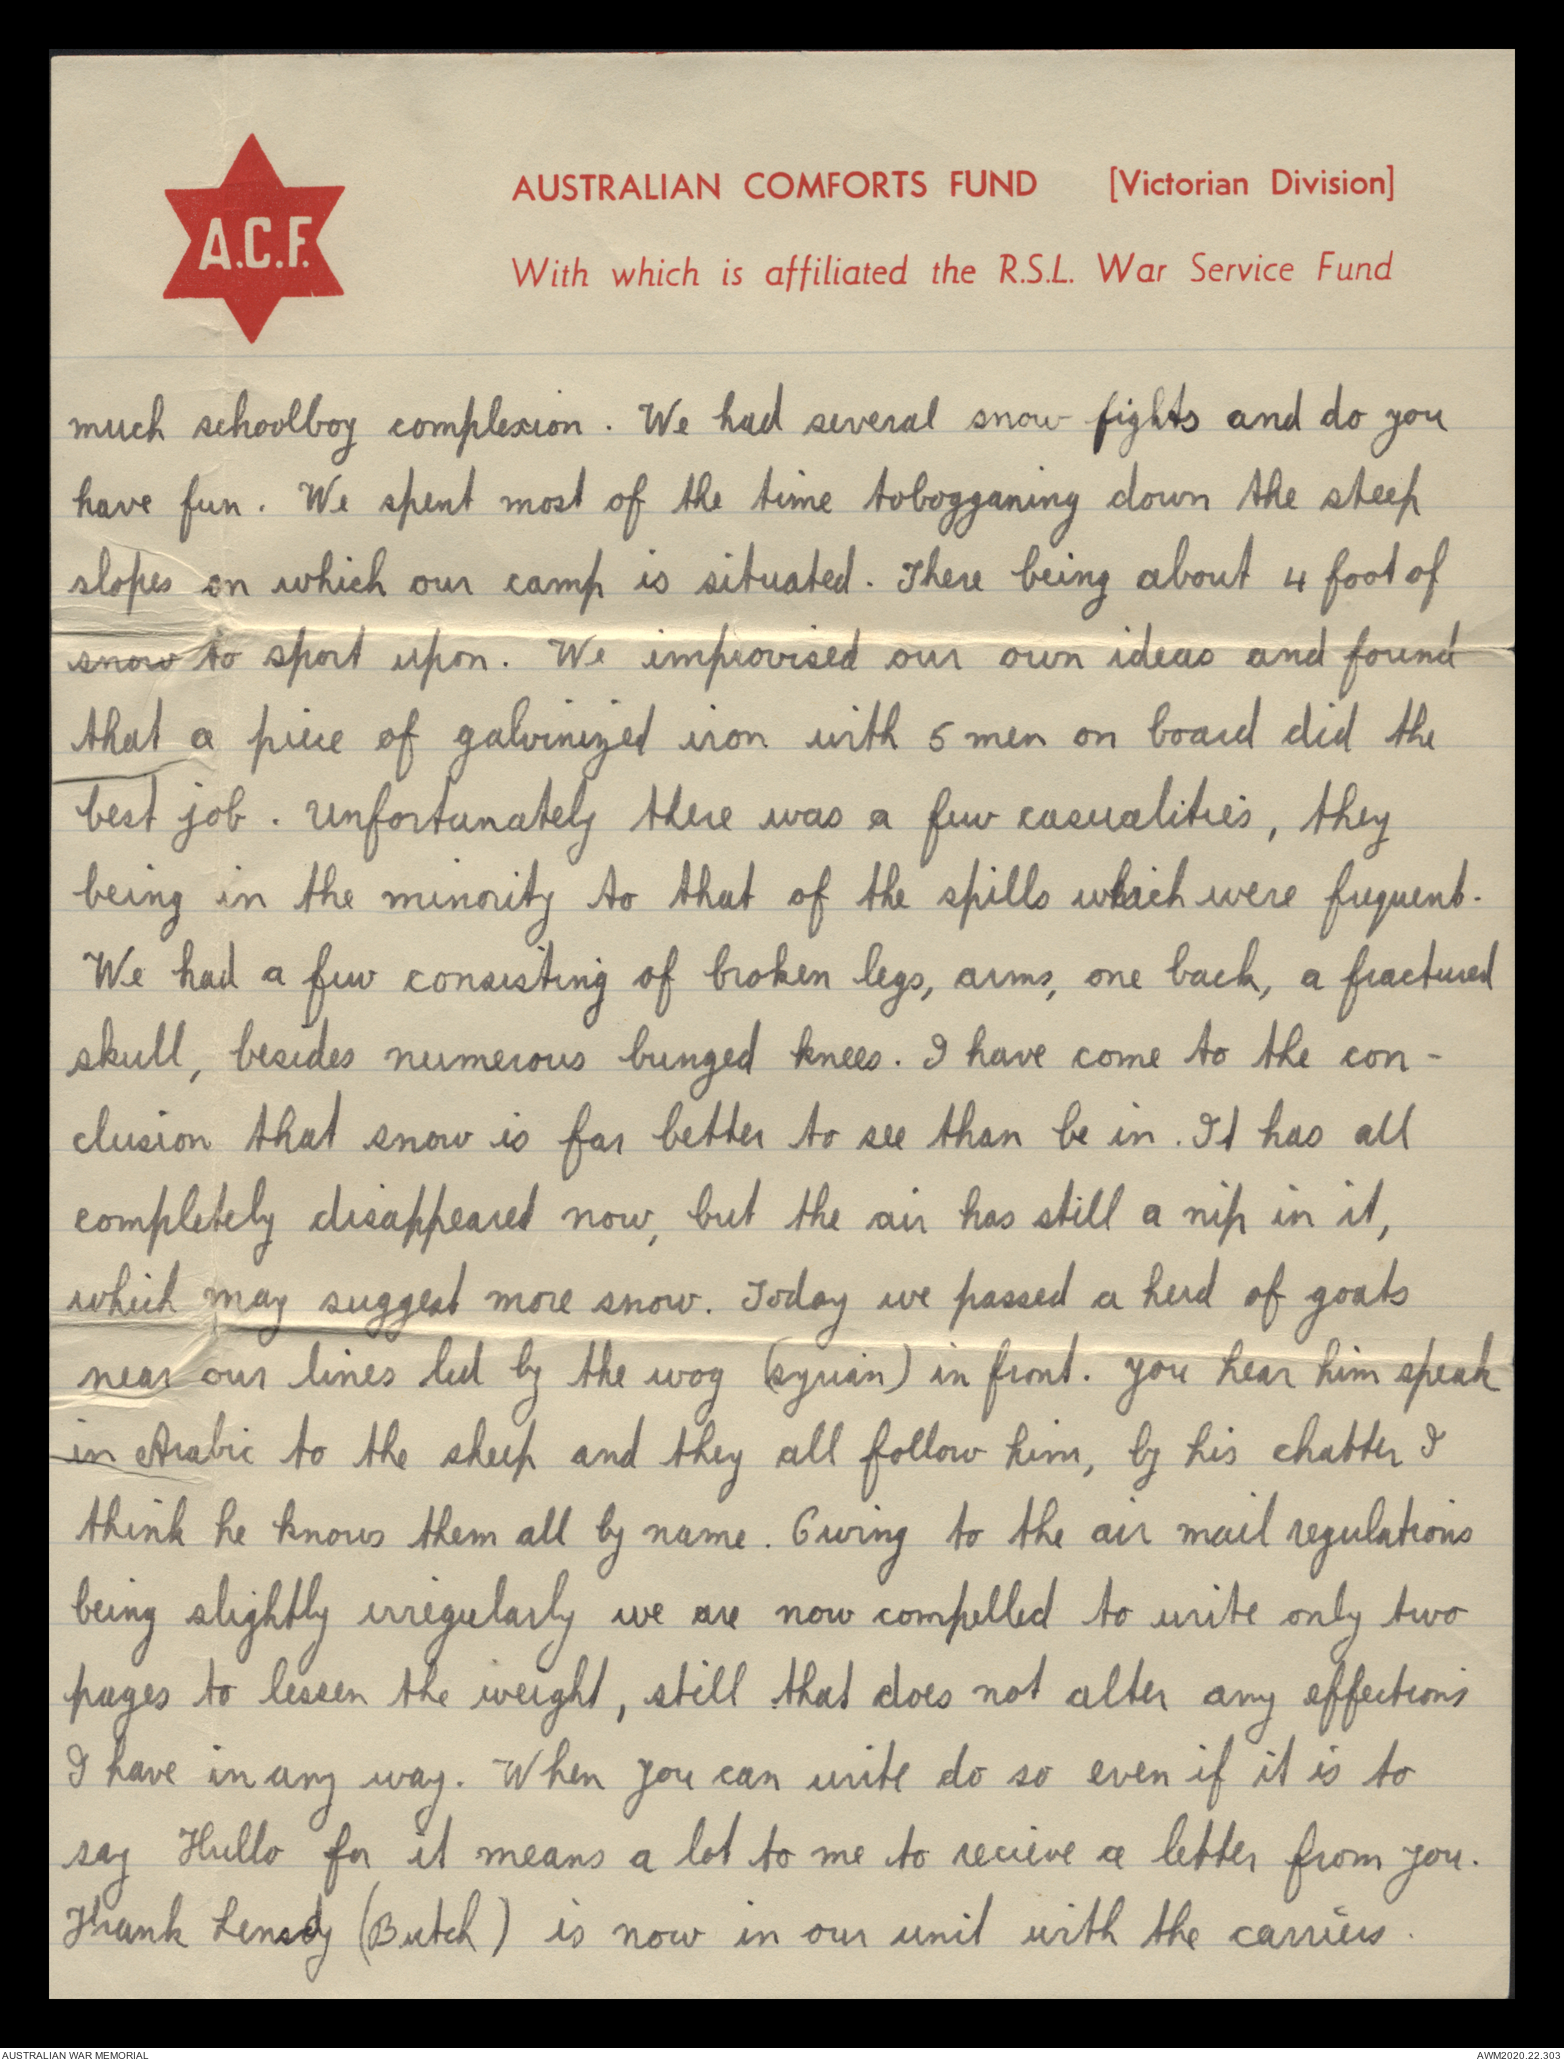 A.C.F.
AUSTRALIAN COMFORTS FUND [Victorian Division]
With which is affiliated the R.S.L. War Service Fund
much schoolboy complexion. We had several snow fights and do you
have fun. We spent most of the time tobogganing down the steep
slopes on which our camp is situated. There being about 4 foot of
snow to sport upon. We improvised our own ideas and found
that a piece of galvinized iron with 5 men on board did the
best job. Unfortunately there was a few casualities, they
being in the minority to that of the spills which were frequent.
We had a few consisting of broken legs, arms, one back, a fractured
skull, besides numerous bunged knees. I have come to the con-
clusion that snow is far better to see than be in. It has all
completely disappeared now, but the air has still a nip in it,
which may suggest more snow. Today we passed a herd of goats
near our lines led by the wog (syrian) in front. You hear him speak
in Arabic to the sheep and they all follow him, by his chatter I
think he knows them all by name. Owing to the air mail regulations
being slightly irregularly we are now compelled to write only two
pages to lessen the weight, still that does not alter any effections
I have in any way. When you can write do so even if it is to
say Hullo for it means a lot to me to recieve a letter from you.
Frank (Butch) is now in our unit with the carriers.
AUSTRALIAN WAR MEMORIAL
AWM2020.22.303